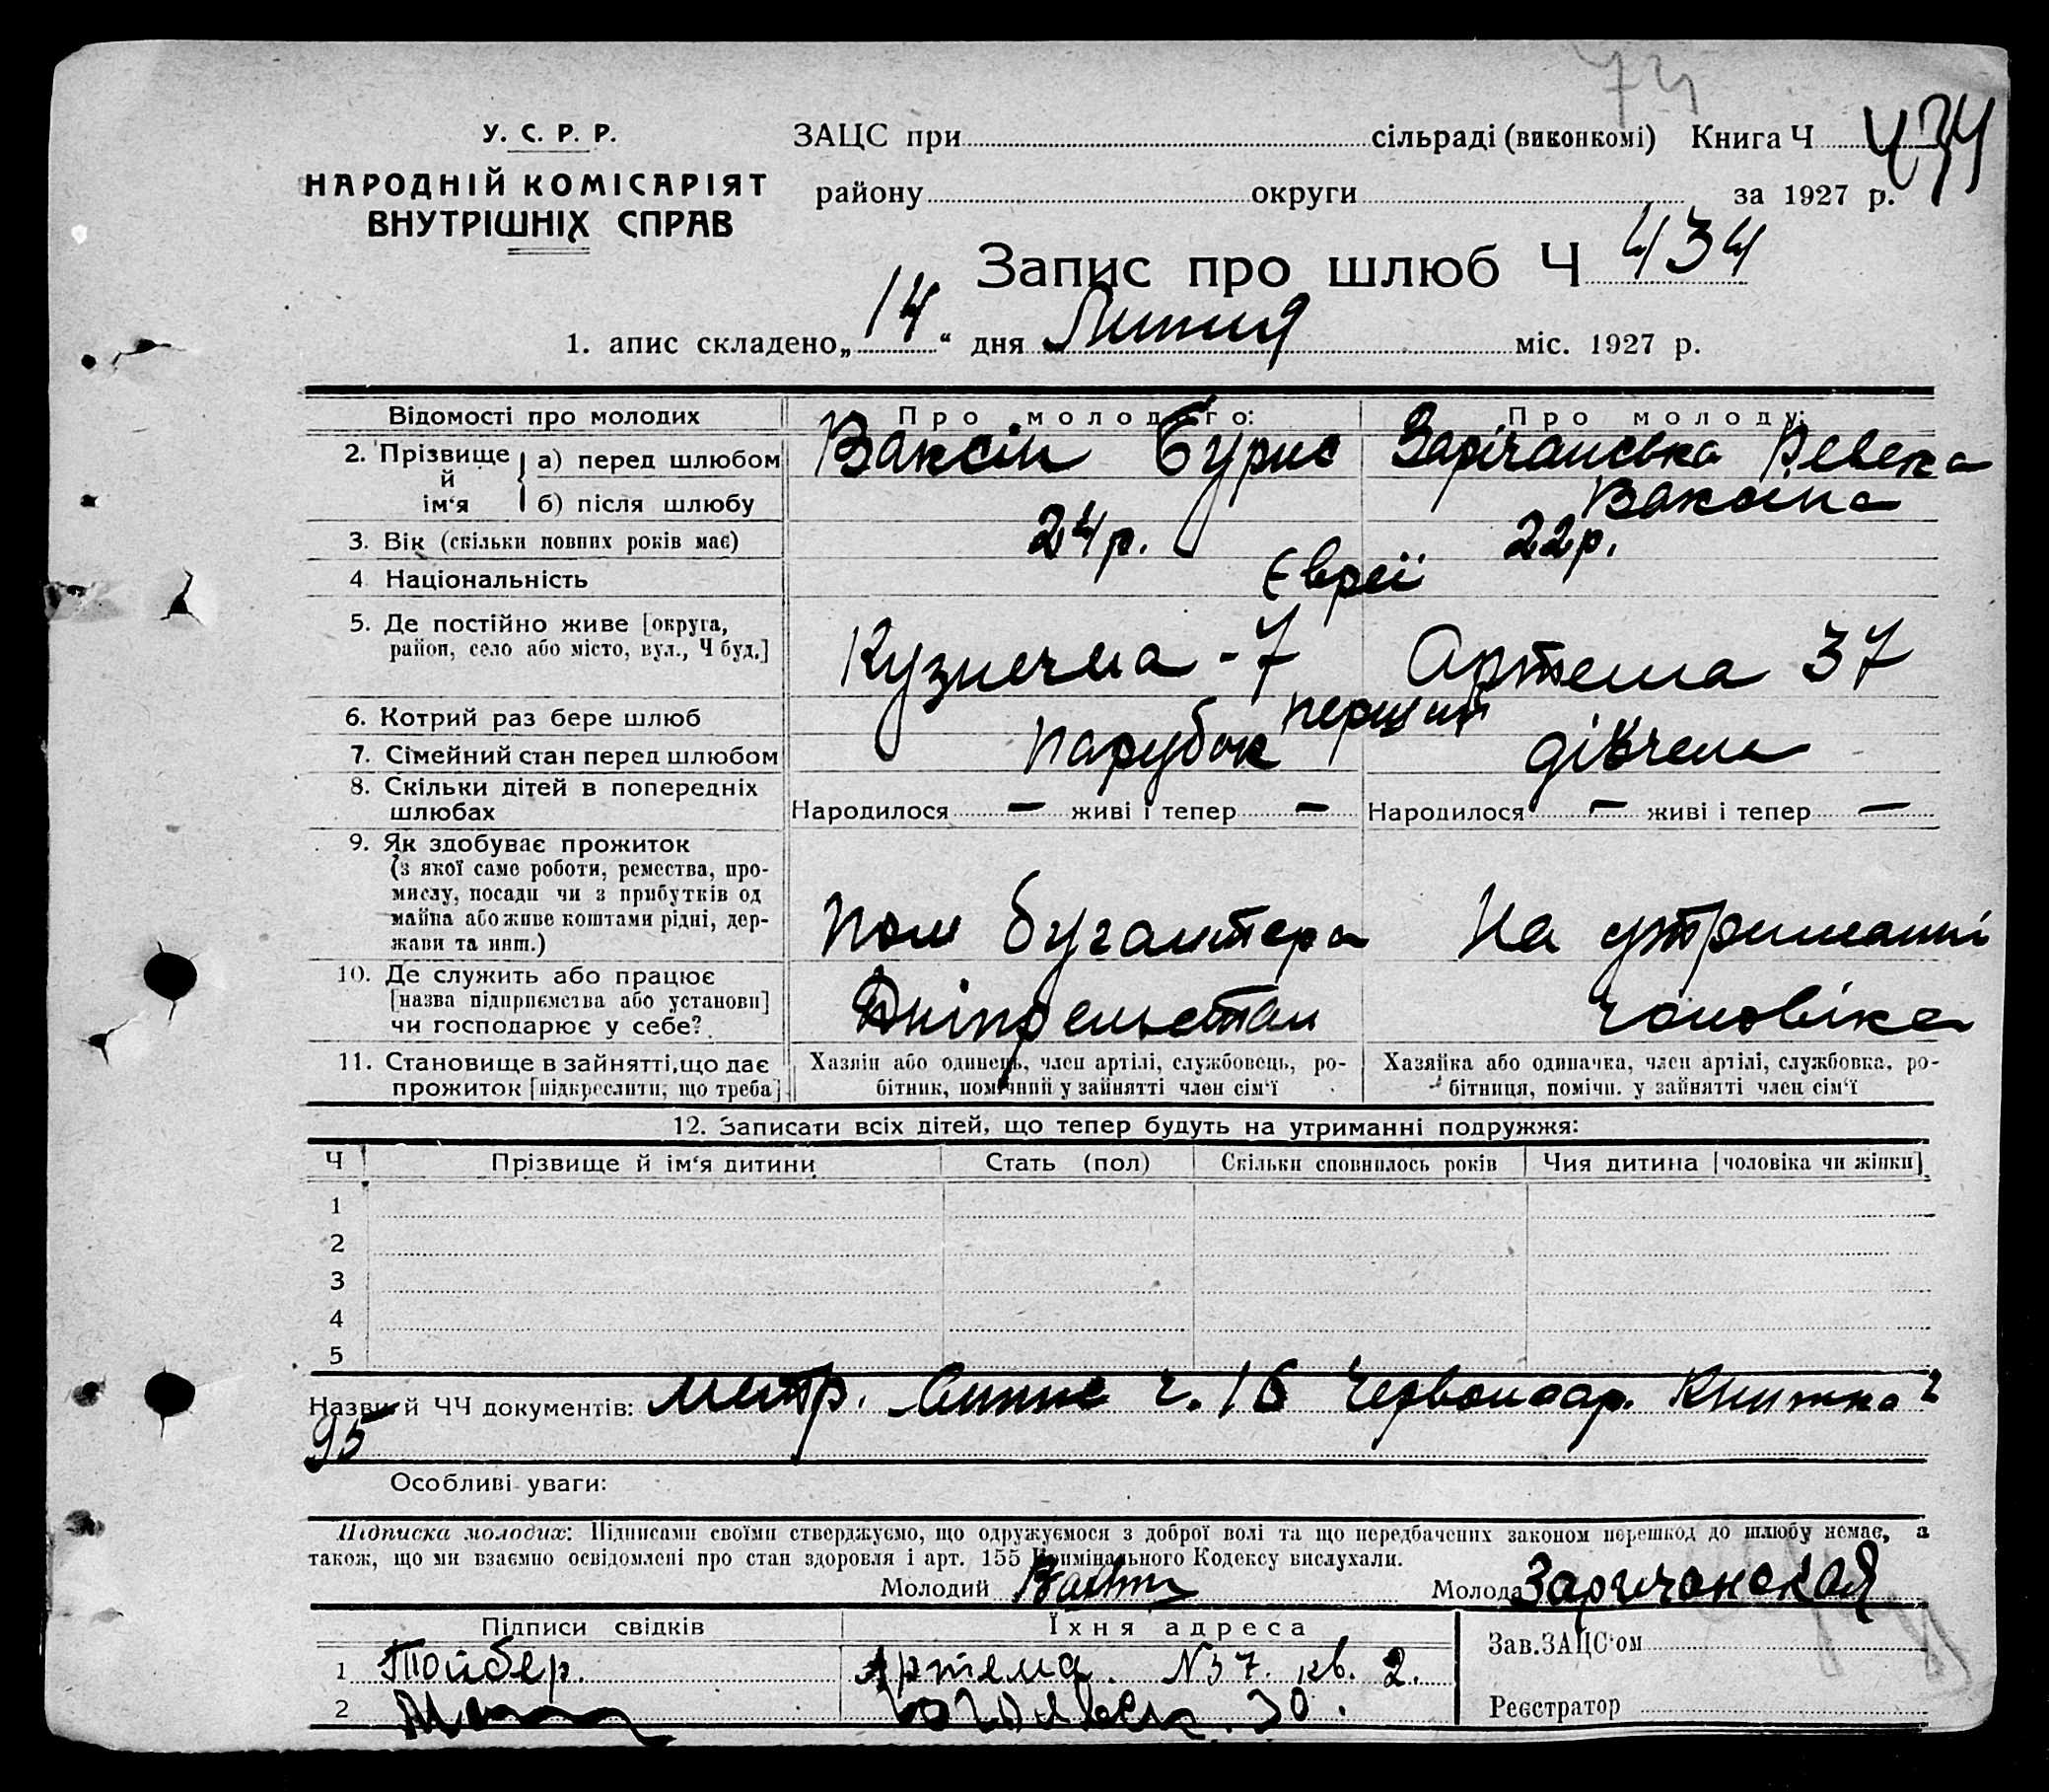 74
У. С. Р. Р.
НАРОДНІЙ КОМІСАРІЯТ
ВНУТРІШНІХ СПРАВ
ЗАЦС при сільраді (виконкомі) Книга Ч 434
району округи за 1927 р.
Запис про шлюб Ч 434
1. апис складено „14“ дня Липня міс. 1927 р.
Відомості про молодих Про молодого: Про молоду:
2. Прізвище й ім‘я а) перед шлюбом Ваксін Бурис Зарічанська Ревека
б) після шлюбу Ваксіна
3. Вік (скільки повних років має) 24р. 22р.
4 Національність Євреї
5. Де постійно живе [округа, район, село або місто, вул., Ч буд.] Кузнечна - 7 Артема 37
6. Котрий раз бере шлюб перший
7. Сімейний стан перед шлюбом парубок дівчена
8. Скільки дітей в попередніх шлюбах Народилося — живі і тепер — Народилося — живі і тепер —
9. Як здобуває прожиток
(з якої саме роботи, ремества, про-
мислу, посади чи з прибутків од
майна або живе коштами рідні, дер-
жави та инш.) Пом бугалтера На утриманні
10. Де служить або працює
[назва підприємства або установи]
чи господарює у себе? чоловіка
11. Становище в зайнятті, що дає прожиток [підкреслити, що треба]
Хазяїн або одинець, член артілі, службовець, ро-
бітник, помічний у зайнятті член сім‘ї
Хазяйка або одиначка, член артілі, службовка, ро-
бітниця, помічн. у зайнятті член сім‘ї
12. Записати всіх дітей, що тепер будуть на утриманні подружжя:
Ч Прізвище й ім‘я дитини Стать (пол) Скільки сповнилось років Чия дитина [чоловіка чи жінки]
1
2
3
4
5
Назви й ЧЧ документів: метр. ч. 16 Червоноар. Книжка ч
95
Особливі уваги:
Підписка молодих: Підписами своїми стверджуємо, що одружуємося з доброї волі та що передбачених законом перешкод до шлюбу немає, а
також, що ми взаємно освідомлені про стан здоровля і арт. 155 Кримінального Кодексу вислухали.
Молодий Молода Заричанская
Підписи свідків Їхня адреса
1 Тойбер. Артема N37. кв. 2.
2 30.
Зав. ЗАЦС‘ом
Реєстратор